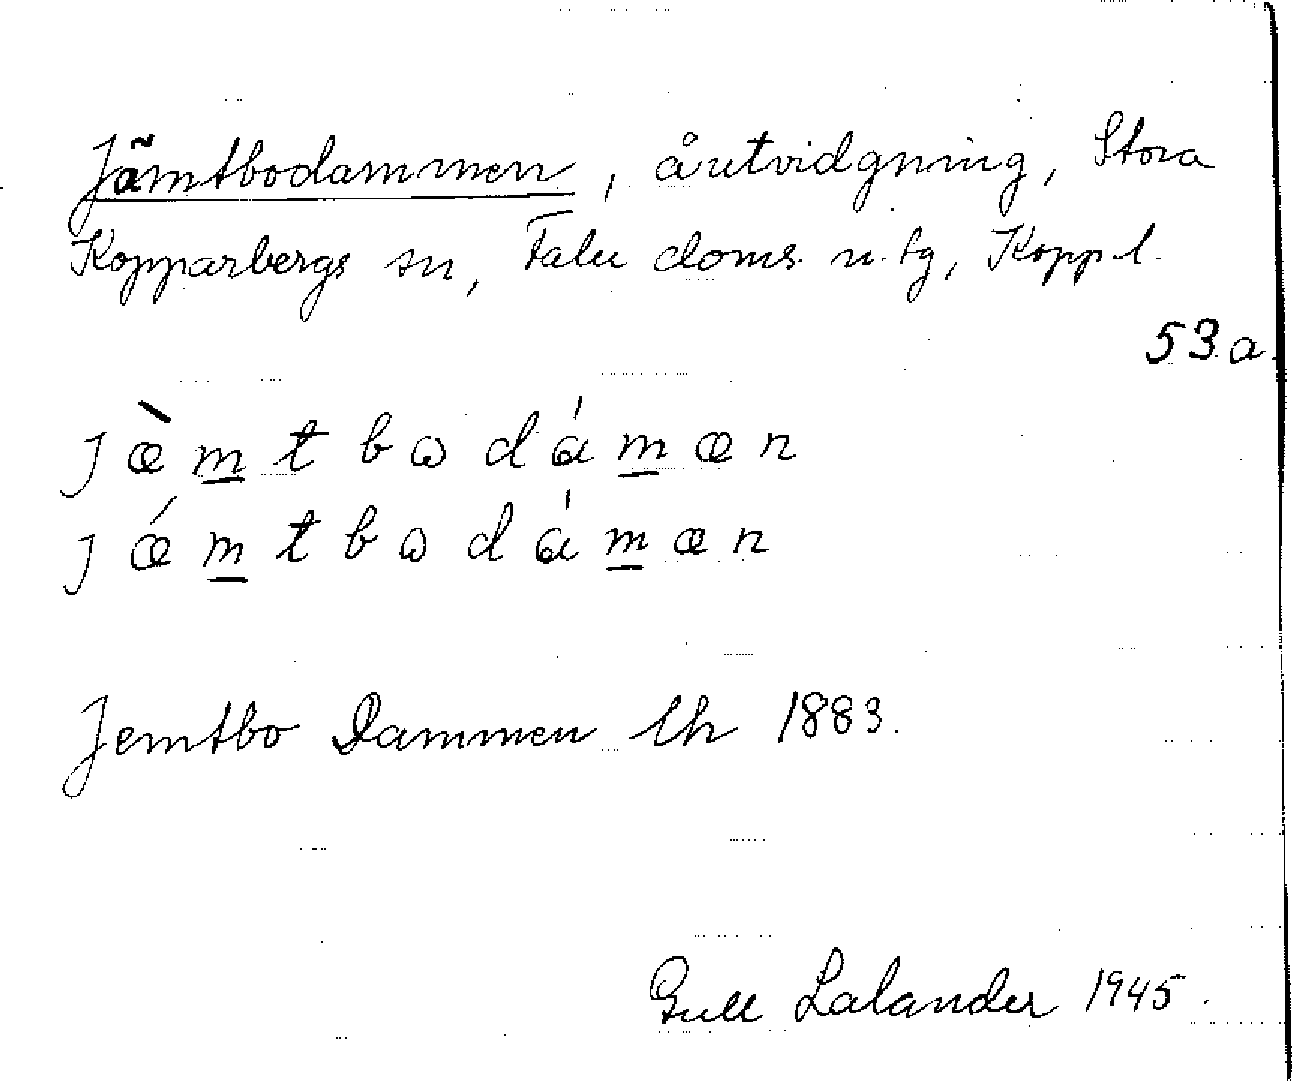 Jämtbodammen, åutvidgning, Stora
Kopparbergs sn, Falu doms. n. tg, Kopp. l.
53 a.
j æ̀ m̲ t b ω d á m̲ æ n
j ǽ m̲ t b ω d á m̲ æ n
Jemtbo Dammen lh 1883.
Gull Lalander 1945.